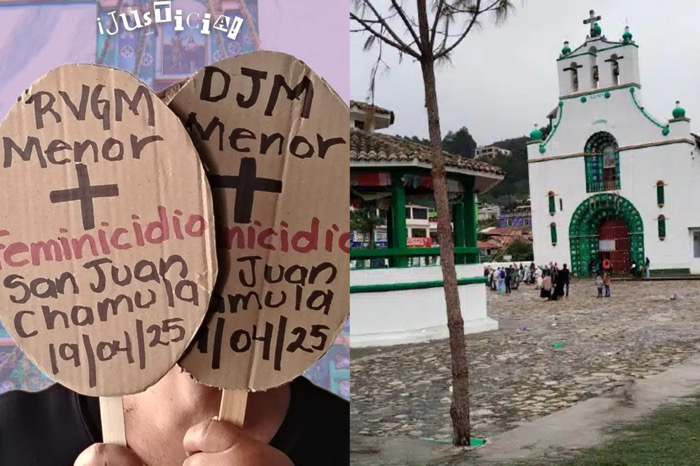 ¡JUSTICIA!
RVGM
Menor
+
Feminicidio
San Juan
Chamula
19/04/25
DJM
Menor
+
micidio
Juan
mula
/04/25